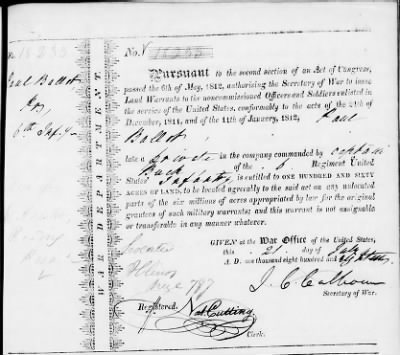 No. 18233
Pursuant to the second section of an Act of Congress,
passed the 6th of May, 1812, authorising the Secretary of War to issue
Land Warrants to the noncommissioned Officers and Soldiers enlisted in
the service of the United States, conformably to the acts of the 24th of
December, 1811, and of the 11th of January, 1812, Paul
Ballot
late a private in the company commanded by captain
Buck of the 6 Regiment United
States' Infantry, is entitled to ONE HUNDRED AND SIXTY
ACRES OF LAND, to be located agreeably to the said act on any unlocated
part of the six millions of acres appropriated by law for the original
grantees of such military warrants; and this warrant is not assignable
or transferable in any manner whatever.
GIVEN at the War Office of the United States,
this 21 day of July
A. D. one thousand eight hundred and
J. C. Calhoun
Secretary of War.
Located
Illinois
Registered. Nat Cutting
Clerk.
WAR DEPARTMENT.
18233
Paul Ballot
6th Infy